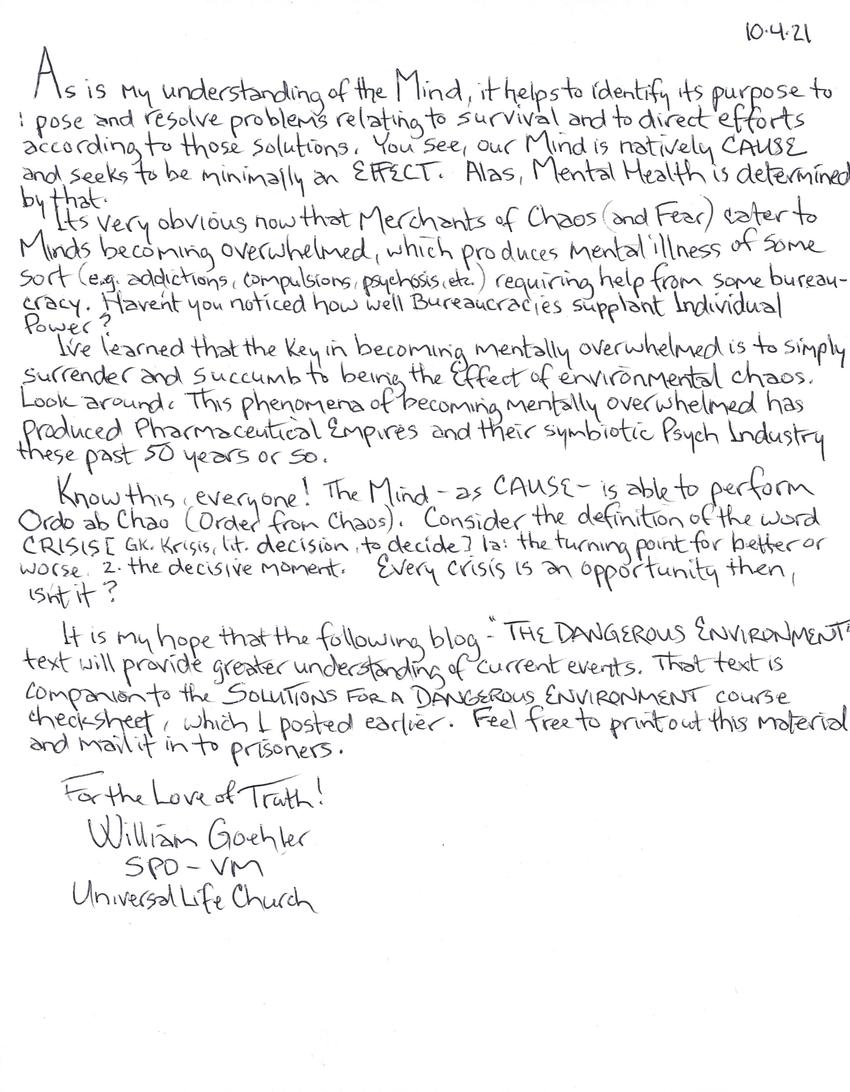 10.4.21
As is my understanding of the Mind, it helps to identify its purpose to
: pose and resolve problems relating to survival and to direct efforts
according to those solutions. You see, our Mind is natively CAUSE
and seeks to be minimally an EFFECT. Alas, Mental Health is determined
by that.
Its very obvious now that Merchants of Chaos (and Fear) cater to
Minds becoming overwhelmed, which produces mental illness of some
sort (e.g. addictions, compulsions, psychosis, etc.) requiring help from some bureau-
cracy. Haven't you noticed how well Bureaucracies supplant Individual
Power?
I've learned that the Key in becoming mentally overwhelmed is to simply
surrender and succumb to being the Effect of environmental chaos.
Look around. This phenomena of becoming mentally overwhelmed has
produced Pharmaceutical Empires and their symbiotic Psych Industry
these past 50 years or so.
Know this, everyone! The Mind - as CAUSE - is able to perform
Ordo ab Chao (Order from Chaos). Consider the definition of the word
CRISIS [GK. Krisis, lit. decision, to decide] 1a: the turning point for better or
worse 2. the decisive moment. Every crisis is an opportunity then,
isn't it?
It is my hope that the following blog - "THE DANGEROUS ENVIRONMENT"
text will provide greater understanding of current events. That text is
companion to the SOLUTIONS FOR A DANGEROUS ENVIRONMENT course
checksheet, which I posted earlier. Feel free to print out this material
and mail it in to prisoners.
For the Love of Truth!
William Goehler
SPD - VM
Universal Life Church